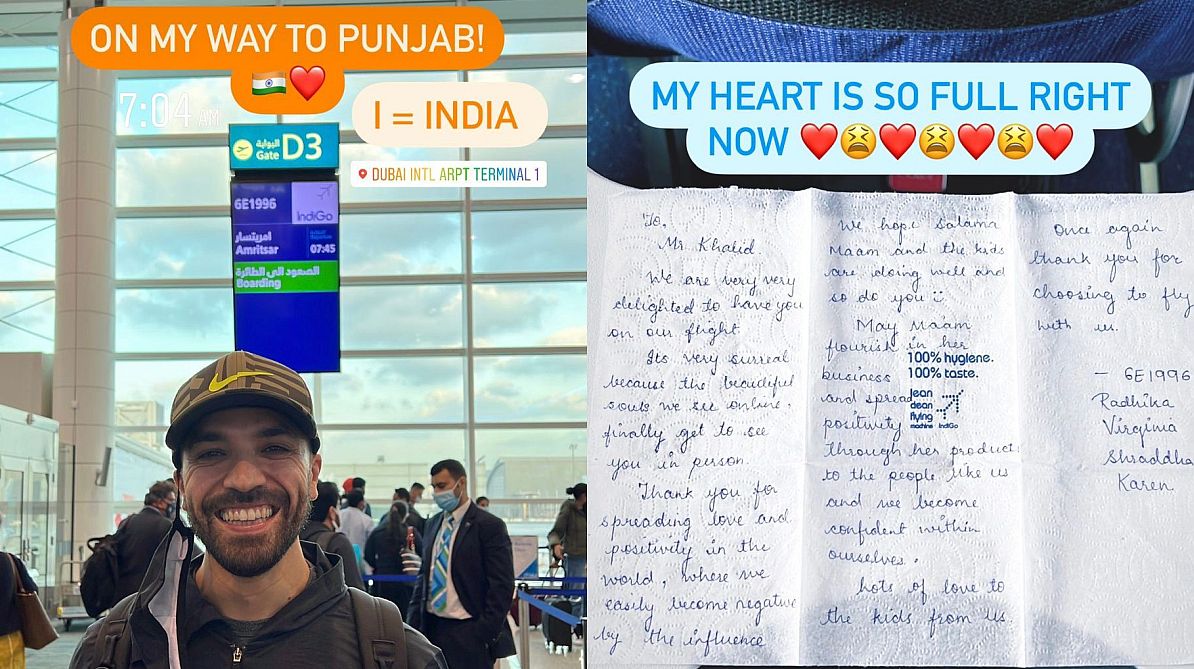 ON MY WAY TO PUNJAB!
🇮🇳❤️
7:04 AM
I = INDIA
DUBAI INTL ARPT TERMINAL 1
البوابة
Gate D3
6E1996
IndiGo
امريتسار
Amritsar 07:45
الصعود الى الطائرة
Boarding
MY HEART IS SO FULL RIGHT
NOW ❤️😫❤️😫❤️😫❤️
To,
Mr. Khalid.
We are very very
delighted to have you
on our flight
Its very surreal
because the beautiful
souls we see online,
finally get to see
you in person.
Thank you for
spreading love and
positivity in the
world, where we
easily become negative
by the influence
We hope Salama
Maam and the kids
are doing well and
so do you :)
May Maam
flourish in her
business
and spread
positivity
through her products
to the people like us
and we become
confident within
ourselves.
Lots of love to
the kids from us.
100% hygiene.
100% taste.
jean
dean
flying
machine IndiGo
Once again
thank you for
choosing to fly
with us.
- 6E1996
Radhika
Virginia
Shraddha
Karen.